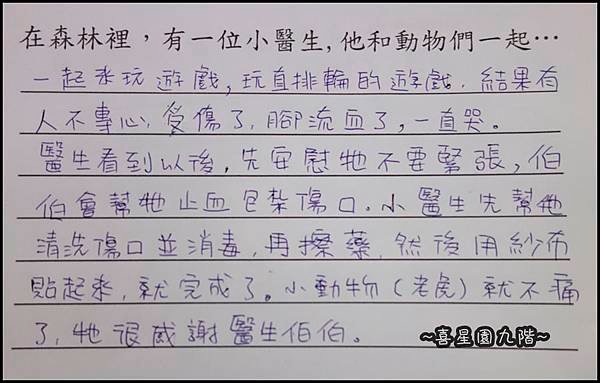 在森林裡，有一位小醫生,他和動物們一起…
一起來玩遊戲，玩直排輪的遊戲．結果有
人不專心，受傷了，腳流血了，一直哭。
醫生看到以後，先安慰牠不要緊張，伯
伯會幫牠止血包紮傷口．小醫生先幫牠
清洗傷口並消毒，再擦藥，然後用紗布
貼起來，就完成了。小動物（老虎）就不痛
了，牠很感謝醫生伯伯。
~喜星園九階~